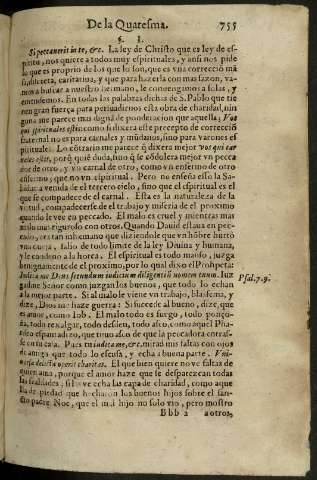 De la Quaresma. 755
§. I.
Si peccaverit in te, &c. La ley de Christo que es ley de es-
piritu, nos quiere a todos muy espirituales, y ansi nos pide
lo que es proprio de los que lo son, que es vna correcció má
sa, discreta, caritatiua, y que para hazerla con mas fazon, va-
mos a buscar a nuestro hermano, le conuengamos a solas, y
enmendemos. En todas las palabras dichas de S. Pablo que tie
nen gran fuerça para persuadirnos esta obra de charidad, nin
guna me parece mas digna de ponderacion que aquella: Vos
qui spirituales estis: como si dixera este precepto de correcció
fraternal no es para carnales y múdanos, sino para varones es
pirituales. Lo cótrario me parece q̃ dixera mejor Vos qui car
nales estis, porq̃ quié duda, sino q̃ se códolera mejor vn pecca
dor de otro, y vn carnal de otro, como vn enfermo de otro
enfermo, que no vn espiritual. Pero no enseña esso la Sa-
biduria venida de el tercero cielo, sino que el espiritual es el
que se compadece de el carnal. Esta es la naturaleza de la
virtud, compadecerse de el trabajo y miseria de el proximo
quando le vee en peccado. El malo es cruel y mientras mas
malo mas riguroso con otros. Quando Dauid estaua en pec-
cado, era tan inhumano que diziendole que vn hóbre hurtó
vna oueja, salio de todo limite de la ley Diuina y humana,
y le condeno a la horca. El espiritual es todo manso, juzga
benignamente de el proximo, por lo qual dixo el Propheta:
Iudica me Deus secundum iudicium diligentiū nomen tuum. Iuz
gadme Señor como juzgan los buenos, que todo lo echan
a la mejor parte. Si al malo le viene vn trabajo, blasfema, y
dize, Dios me haze guerra: Si succede al bueno, dize, que
es amor, como Iob. El malo todo es fuego, todo ponço-
ña, todo renalgar, todo desden, todo asco, como aquel Pha-
riseo espantadizo, que tuuo asco de que la peccadora entras-
se en su casa. Pues tu iudica me, &c. mirad mis faltas con ojos
de amigo que todo lo escusa, y echa a buena parte. Vni-
uersa delicta operit charitas. El que bien quiere no ve faltas de
quien ama, porque el amor haze que se desparezcan todas
las fealdades, si se ve echa las capa de charidad, como aque
lla de piedad que hecharon los buenos hijos sobre el san-
sto padre Noe, que el mal hijo no solo vio, pero mostro
Psal. 7.9.
Bbb 2 a otros,